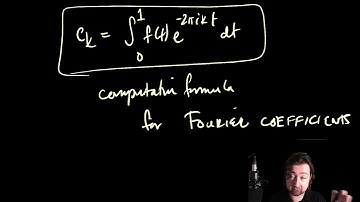 c_k = ∫_0^1 f(t) e^{-2πikt} dt
computation formula
for FOURIER COEFFICIENTS